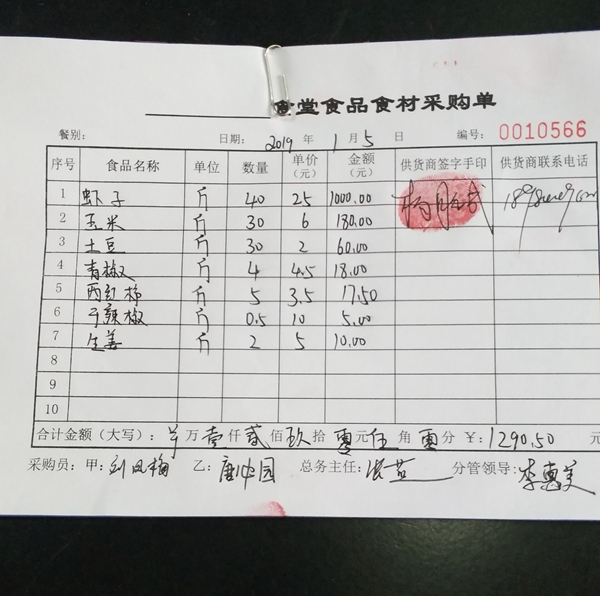 食堂食品食材采购单
餐别: 日期: 2019 年 1 月 5 日 编号: 0010566
序号 食品名称 单位 数量 单价(元) 金额(元) 供货商签字手印 供货商联系电话
1 虾子 斤 40 25 1000.00
2 玉米 斤 30 6 180.00
3 土豆 斤 30 2 60.00
4 青椒 斤 4 4.5 18.00
5 西红柿 斤 5 3.5 17.50
6 干辣椒 斤 0.5 10 5.00
7 生姜 斤 2 5 10.00
8
9
10
合计金额(大写): 万壹仟贰佰玖拾零元伍角零分 ¥: 1290.50 元
采购员: 甲: 刘凤梅 乙: 唐中园 总务主任: 分管领导: 李惠美